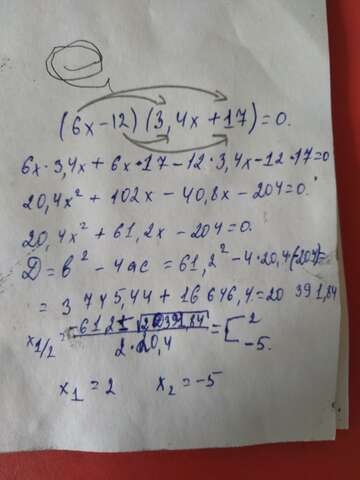 (6x-12)(3,4x+17)=0.
6x·3,4x+6x·17-12·3,4x-12·17=0
20,4x²+102x-40,8x-204=0.
20,4x²+61,2x-204=0.
D=b²-4ac=61,2²-4·20,4·(-204)=
=3745,44+16646,4=20391,84
x1/2=-61,2±√20391,84/2·20,4=[2 -5.
x₁=2 x₂=-5